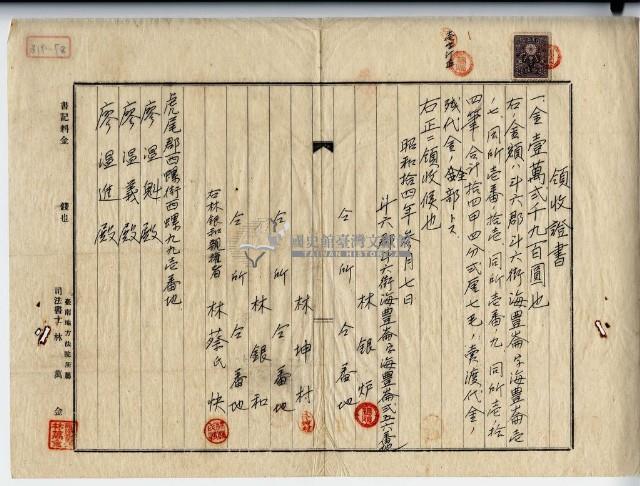 領收證書
一、金壹萬弍千九百圓也
右ノ金額ハ斗六郡斗六街海豊崙字海豊崙壱
ノ七、同所壱番拾壱、同所壱番ノ九、同所壱拾
四筆、合計拾四甲四分弍厘七毛ノ賣渡代金ノ
残代金ノ全部トス
右正ニ領收候也
昭和拾四年 月七日
斗六郡斗六街海豊崙字海豊崙弍五六番地
林銀炉
仝所仝番地
林坤村
仝所仝番地
林銀和
仝所仝番地
右林銀和親權者 林蔡氏快
虎尾郡西螺街西螺九九壱番地
廖温魁殿
廖温義殿
廖温進殿
書記料金 錢也
臺南地方法院所屬
司法書士 林萬金
國史館臺灣文獻館
TAIWAN HISTORICA